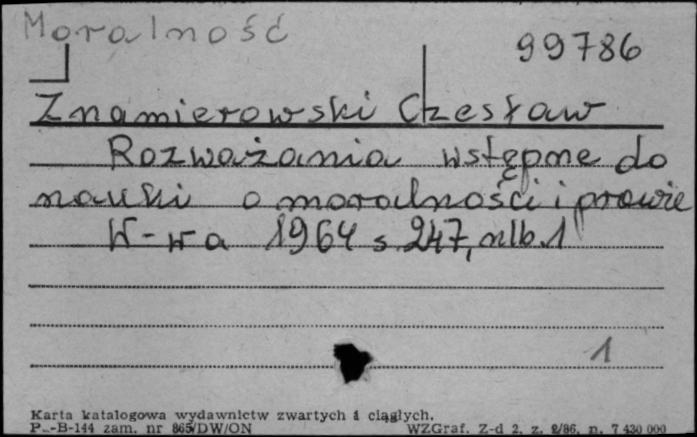 Moralność
99786
Znamierowski Czesław
Rozważania wstępne do
nauki o moralności i prawie
W-wa 1964 s. 247, nlb. 1
1
Karta katalogowa wydawnictw zwartych i ciągłych.
P.-B-144 zam. nr 865/DW/ON WZGraf. Z-d 2, z. 2/86, n. 7 430 000